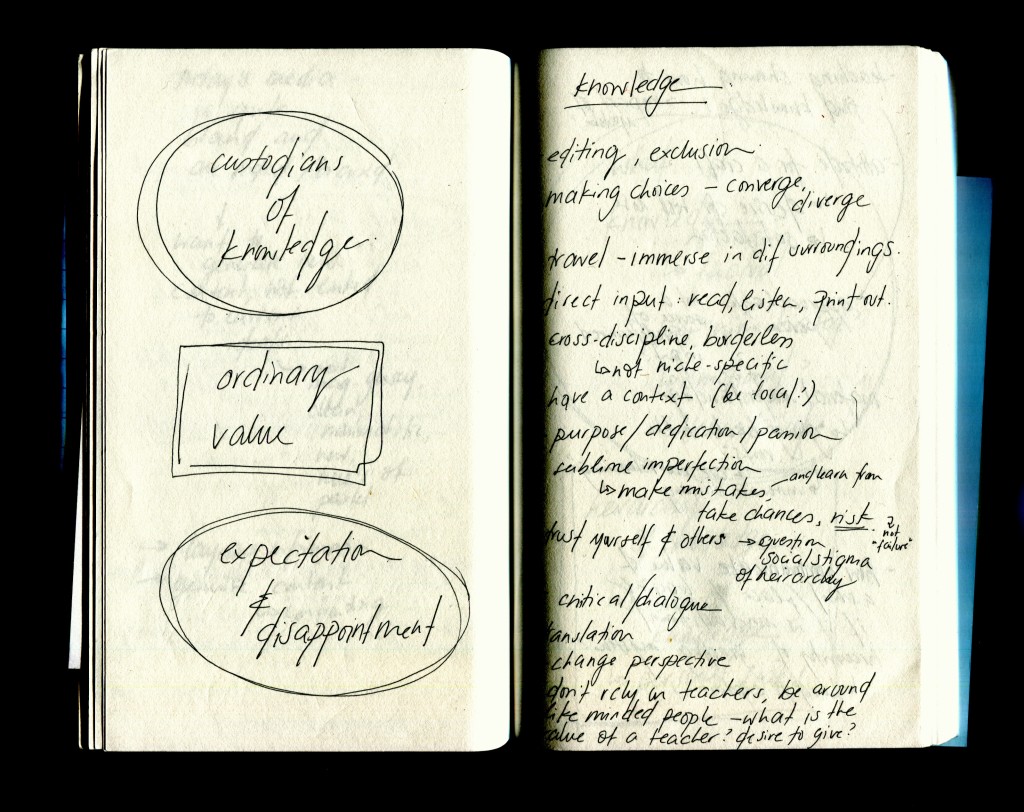 custodians
of
knowledge.
ordinary
value
expectation
&
disappointment
knowledge.
editing, exclusion.
making choices – converge,
diverge
travel – immerse in dif surroundings.
direct input: read, listen, print out.
cross-discipline, borderless
↳ not niche-specific
have a context (be local!)
purpose/dedication/passion
sublime imperfection
↳ make mistakes, – and learn from
take chances, risk.
not
"failure"
trust yourself & others → question
social stigma
of heirarchy
critical/dialogue
translation
change perspective
don't rely on teachers, be around
like minded people – what is the
value of a teacher? desire to give?